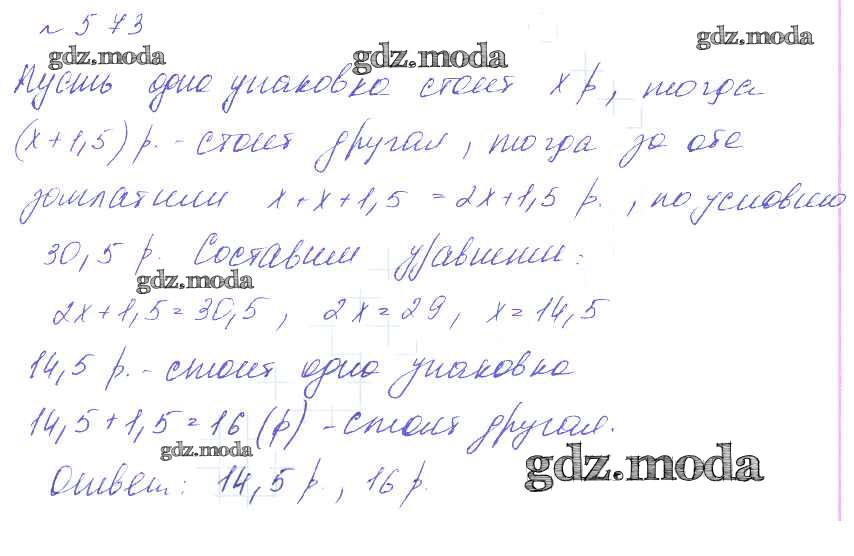 № 573
gdz.moda gdz.moda gdz.moda
Пусть одна упаковка стоит x р, тогда
(x+1,5) р. - стоит другая, тогда за обе
заплатили x+x+1,5 = 2x+1,5 р. , по условию
30,5 р. Составим уравнение:
gdz.moda
2x+1,5=30,5, 2x=29, x=14,5
14,5 р. - стоит одна упаковка
14,5+1,5=16 (р) - стоит другая.
gdz.moda gdz.moda
Ответ: 14,5 р., 16 р.